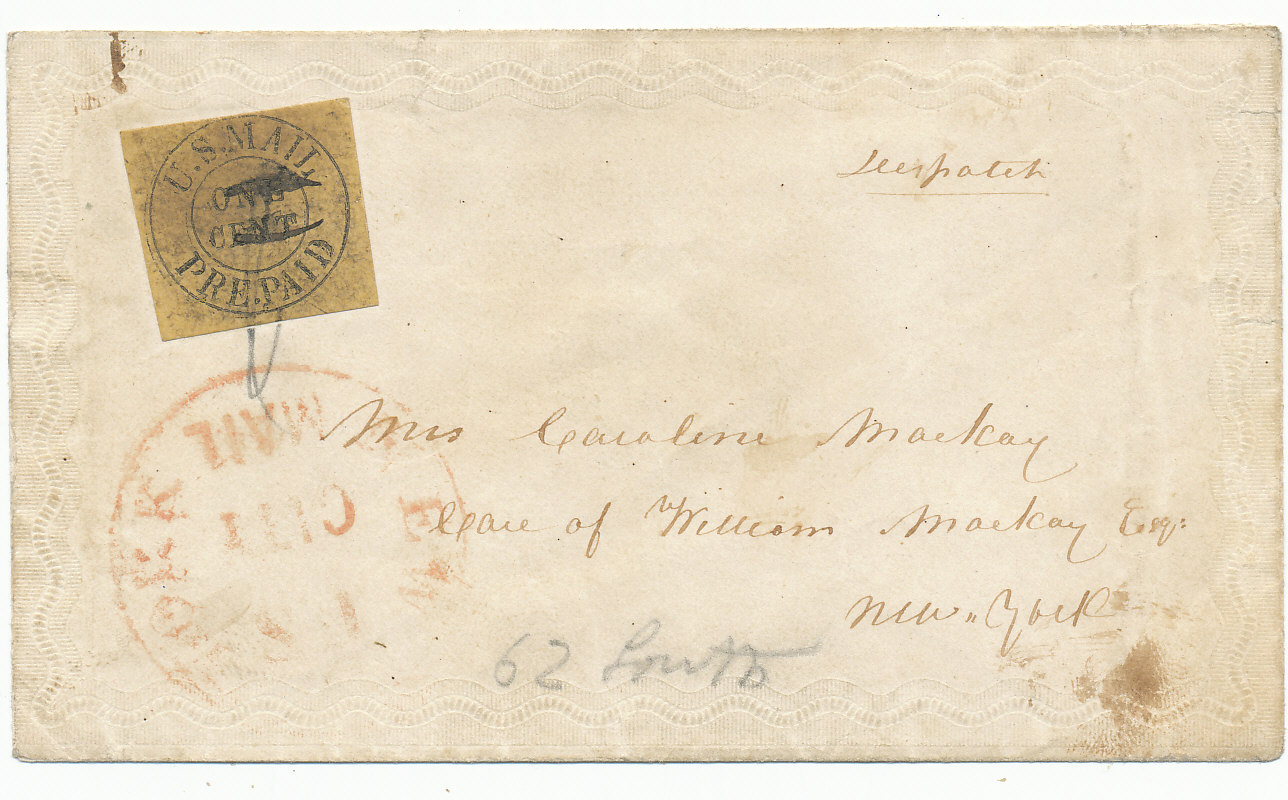 U.S. MAIL
ONE
CENT
PRE.PAID
Despatch
Mrs Caroline Mackay
Care of William Mackay Esq:
New-York
62 South